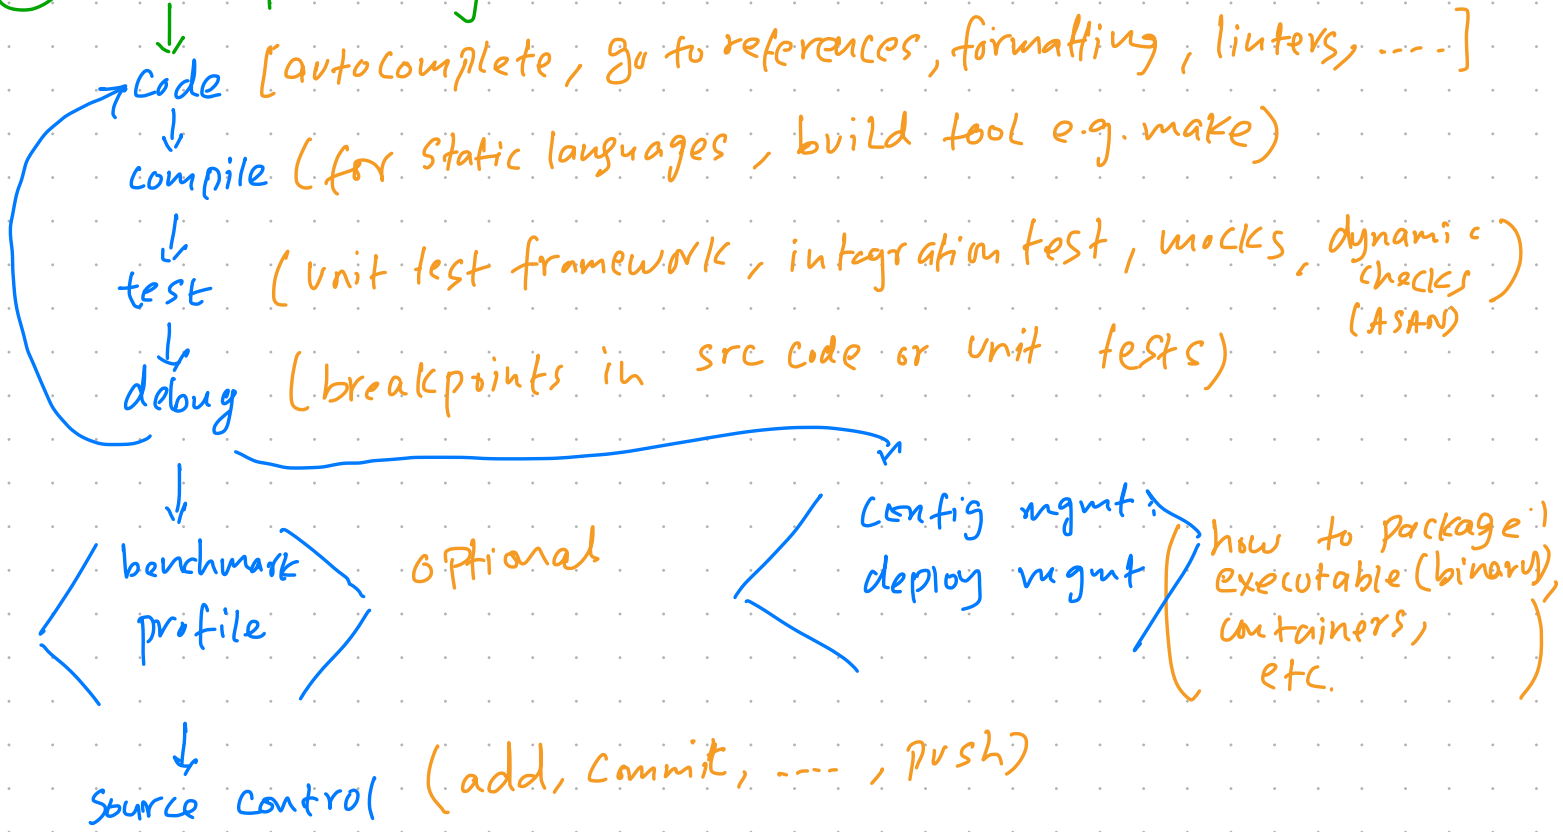 code [autocomplete, go to references, formatting, linters, ....]
compile (for static languages, build tool e.g. make)
test (unit test framework, integration test, mocks, dynamic
checks
(ASAN)
)
debug (breakpoints in src code or unit tests)
config mgmt:
deploy mgmt
(how to package:
executable (binary),
containers,
etc.)
benchmark optional
profile
source control (add, commit, ...., push)